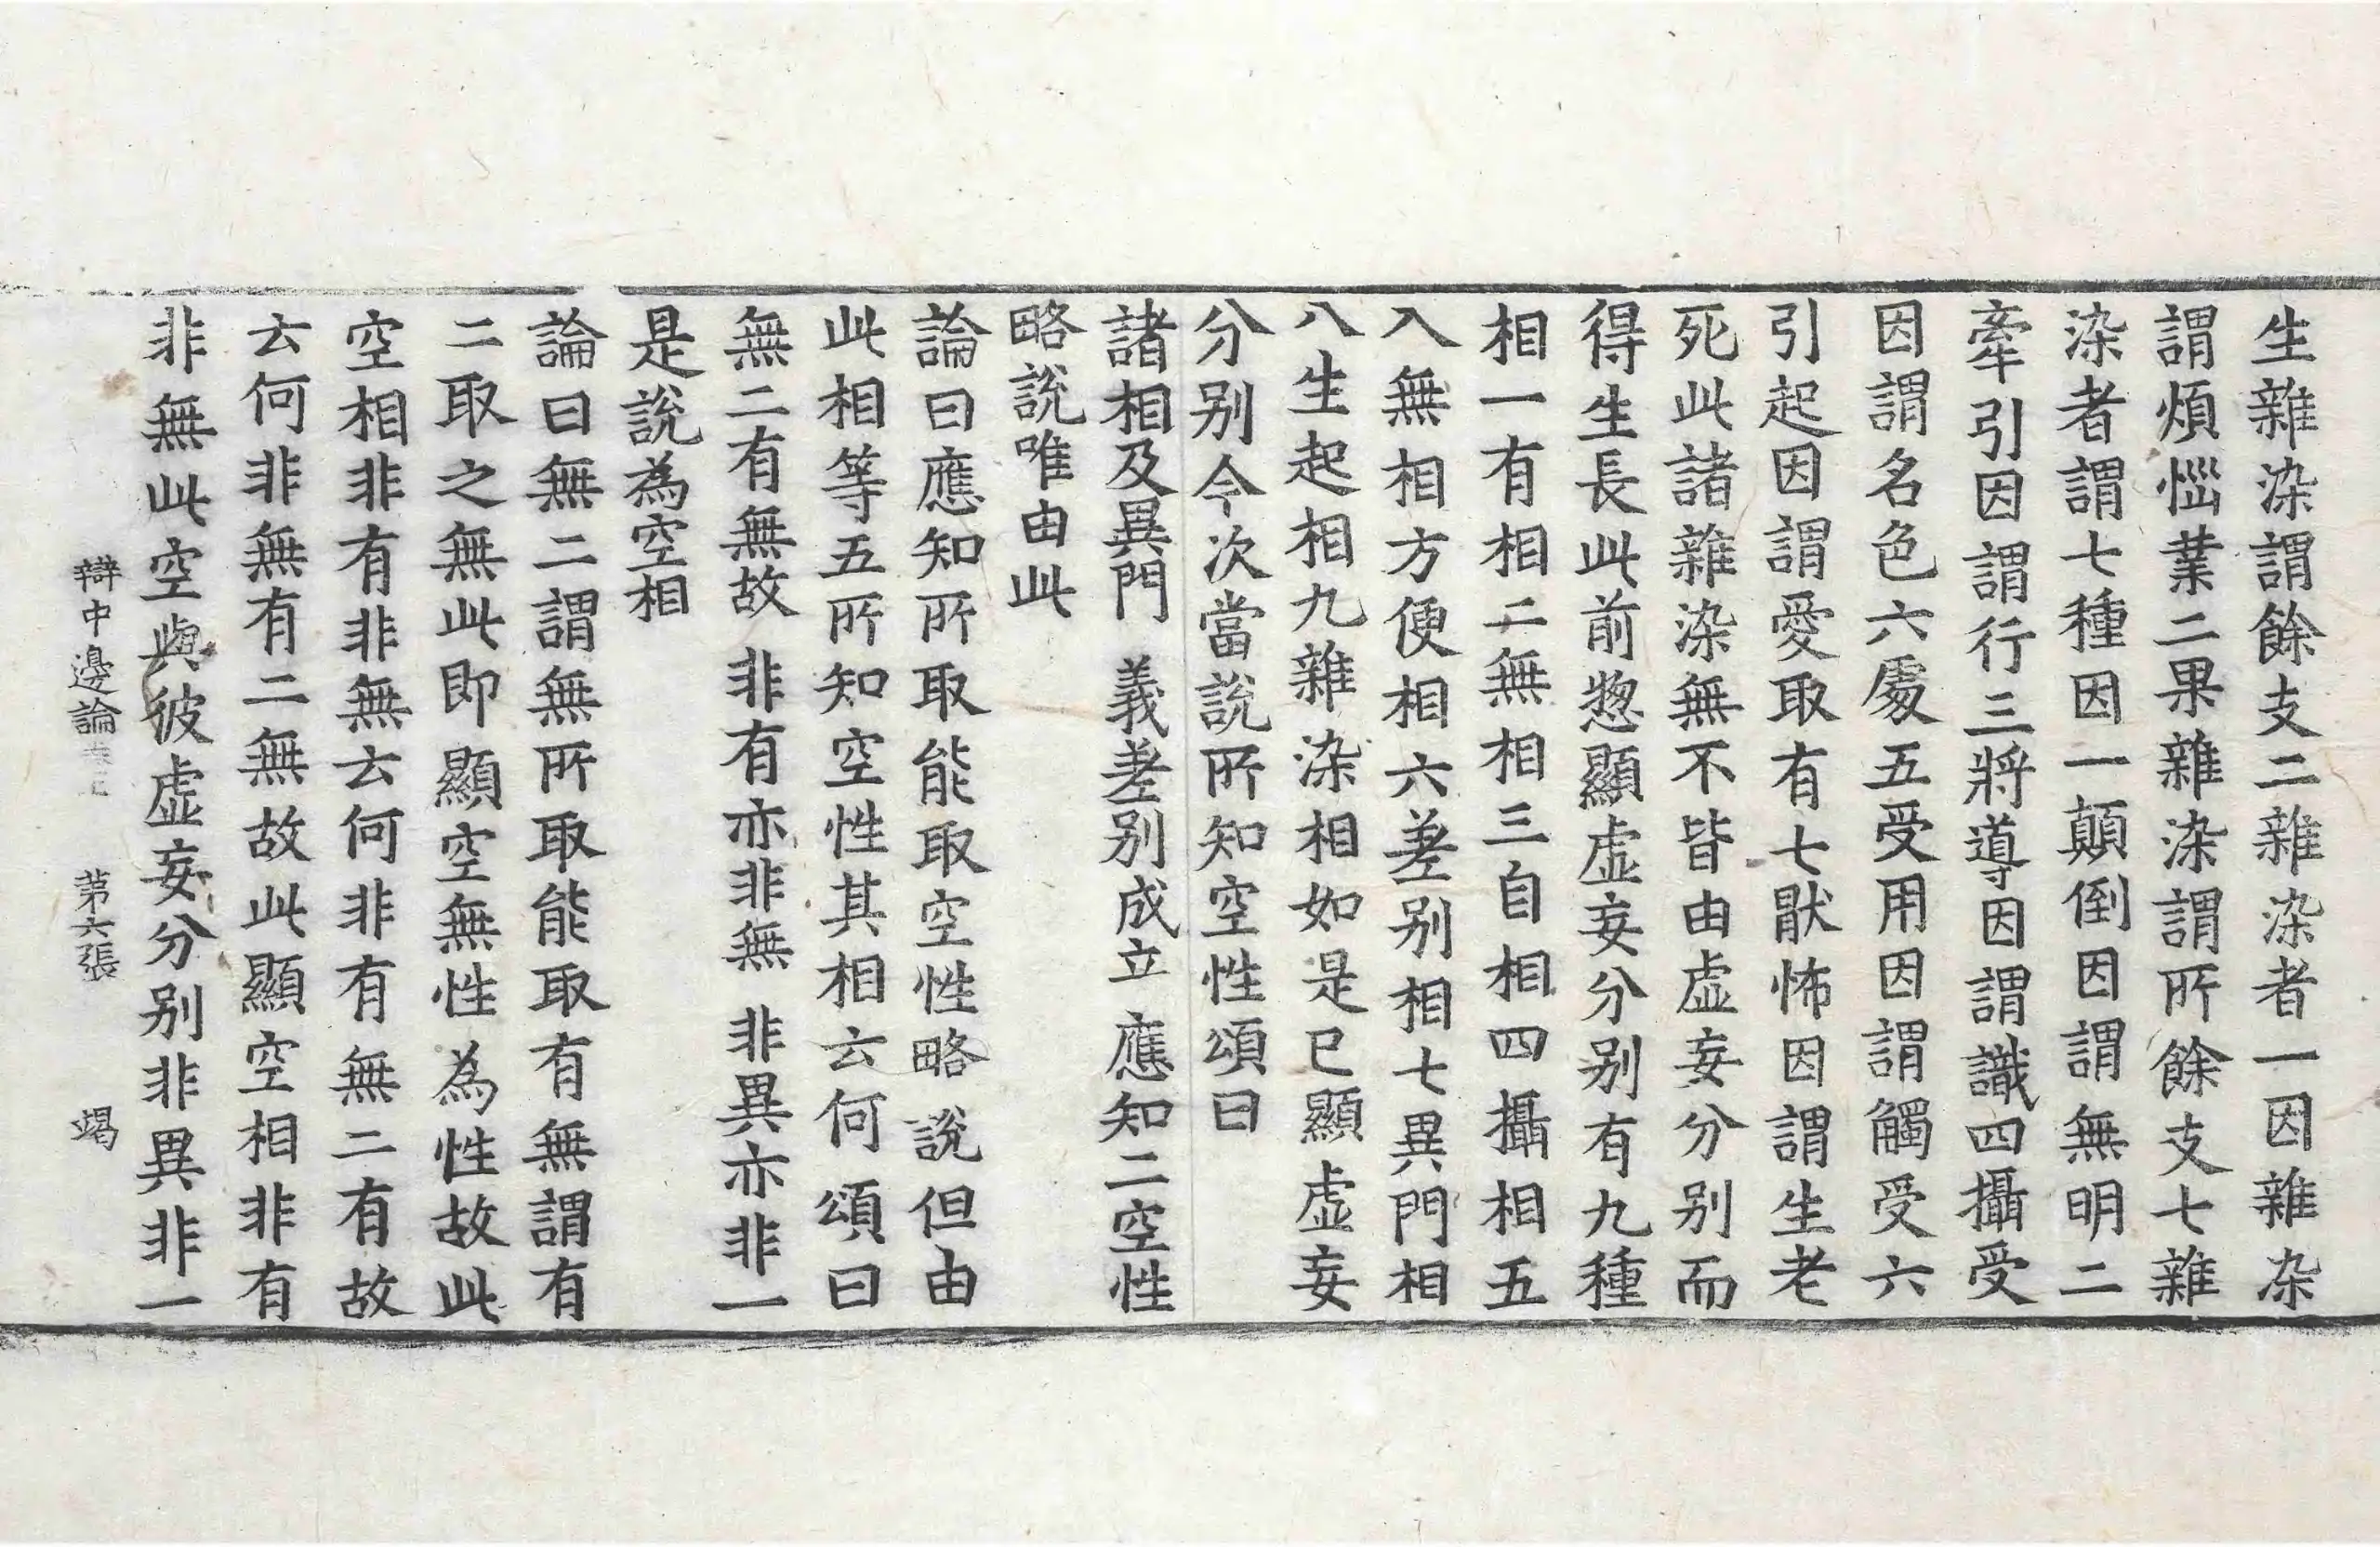 生雜染謂餘支二雜染者一因雜染
謂煩惱業二果雜染謂所餘支七雜
染者謂七種因一顛倒因謂無明二
牽引因謂行三將導因謂識四攝受
因謂名色六處五受用因謂觸受六
引起因謂愛取有七猒怖因謂生老
死此諸雜染無不皆由虛妄分別而
得生長此前惣顯虛妄分別有九種
相一有相二無相三自相四攝相五
入無相方便相六差別相七異門相
八生起相九雜染相如是已顯虛妄
分別今次當說所知空性頌曰
諸相及異門 義差別成立 應知二空性
略說唯由此
論曰應知所取能取空性略說但由
此相等五所知空性其相云何頌曰
無二有無故 非有亦非無 非異亦非一
是說為空相
論曰無二謂無所取能取有無謂有
二取之無此即顯空無性為性故此
空相非有非無云何非有無二有故
云何非無有二無故此顯空相非有
非無此空與彼虛妄分別非異非一
辯中邊論 第六張 竭